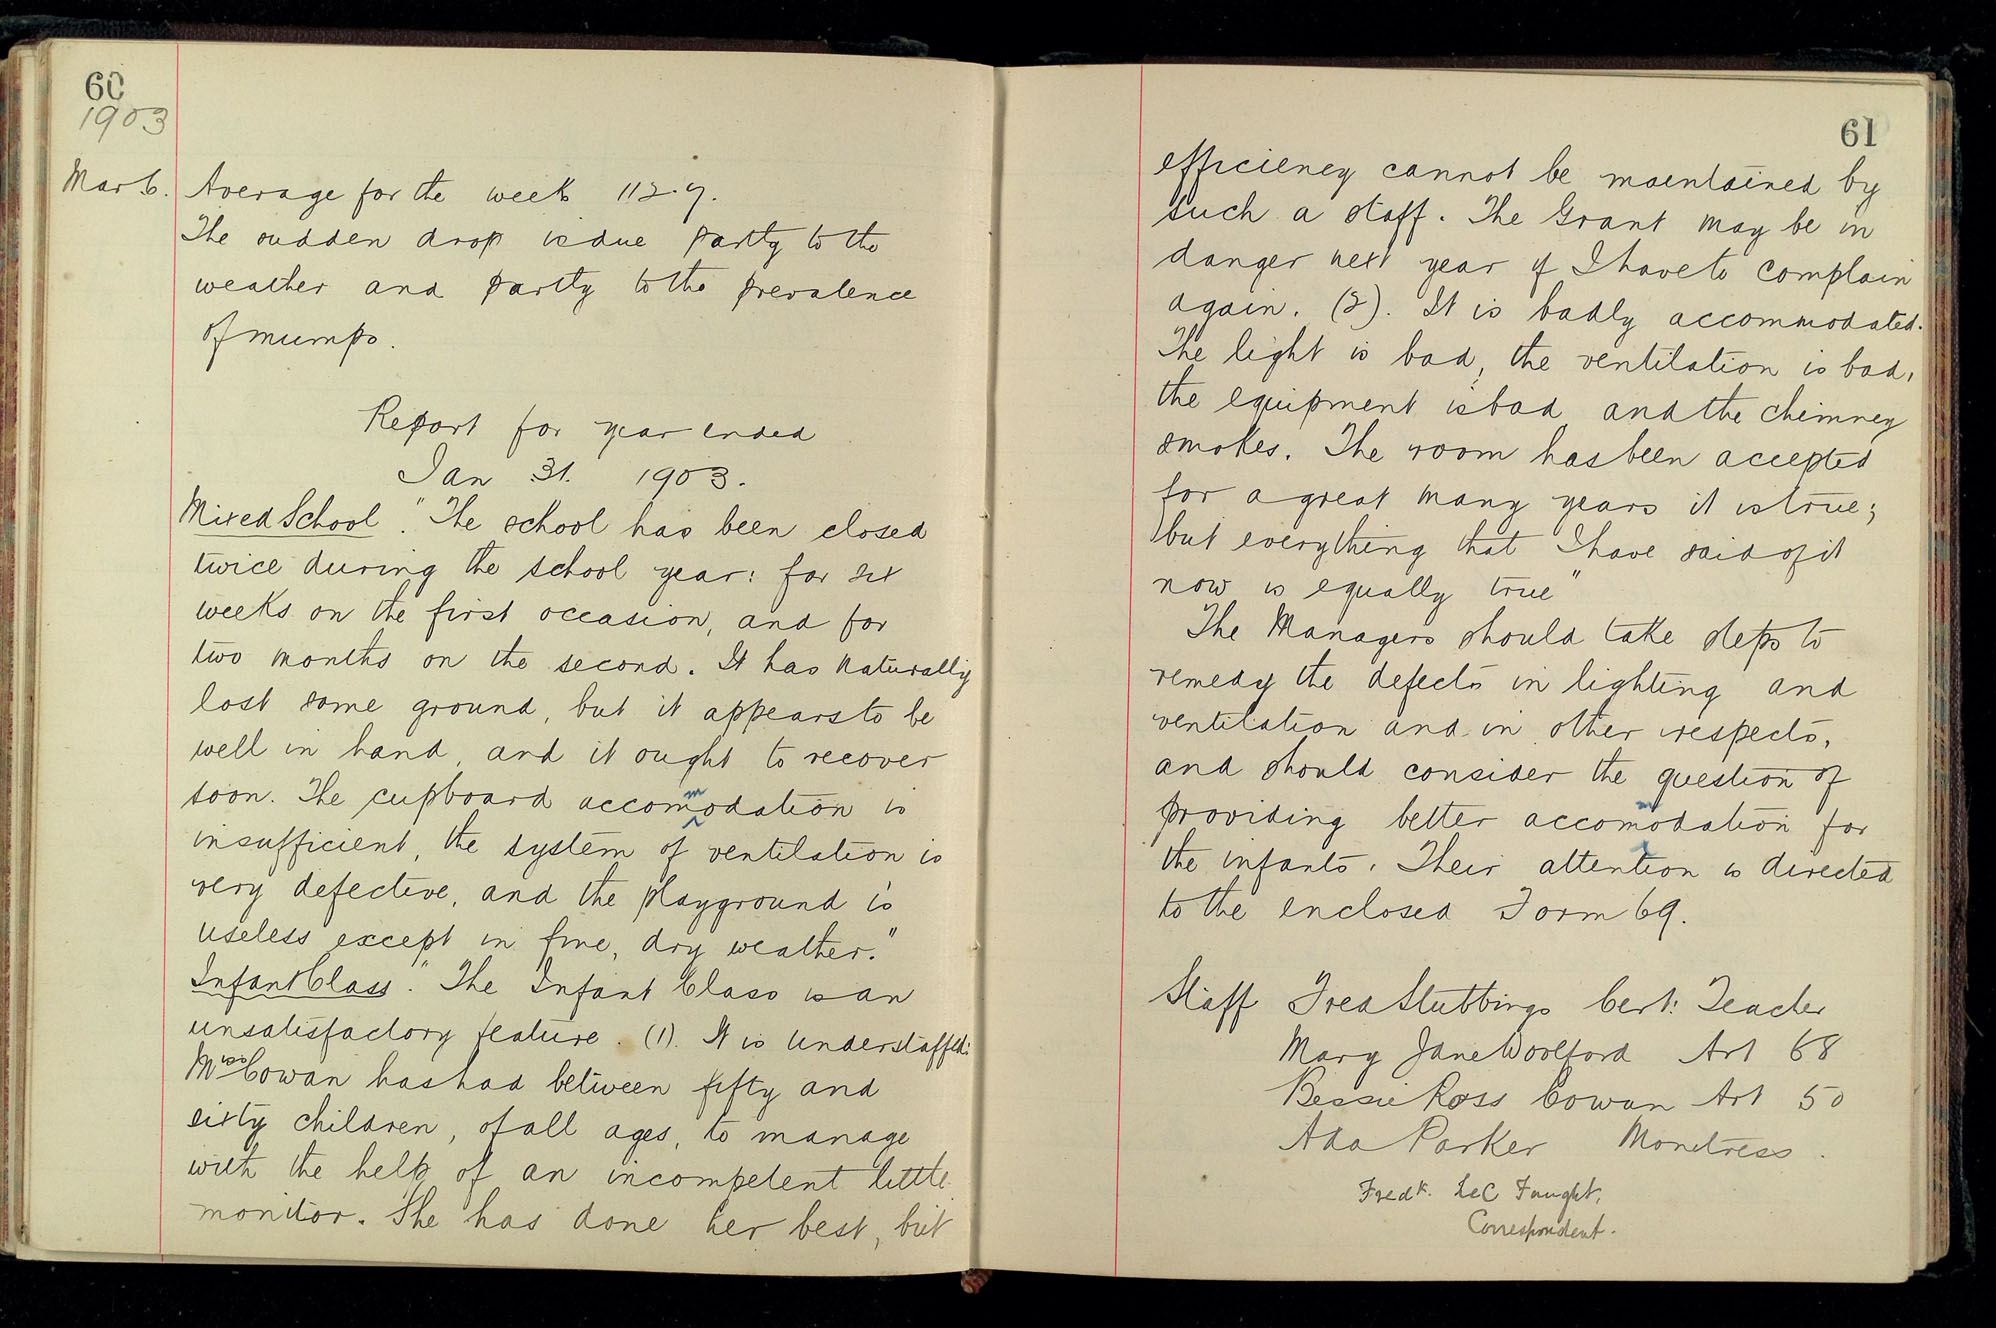 60
1903
Mar 6. Average for the week 112.7.
The sudden drop is due partly to the
weather and partly to the prevalence
of mumps.
Report for year ended
Jan 31. 1903.
Mixed School. "The school has been closed
twice during the school year: for six
weeks on the first occasion, and for
two months on the second. It has naturally
lost some ground, but it appears to be
well in hand, and it ought to recover
soon. The cupboard accommodation is
insufficient, the system of ventilation is
very defective, and the playground is
useless except in fine, dry weather."
Infant Class. "The Infant Class is an
unsatisfactory feature. (1). It is understaffed:
Miss Cowan has had between fifty and
sixty children, of all ages, to manage
with the help of an incompetent little
monitor. She has done her best, but
61
efficiency cannot be maintained by
such a staff. The Grant may be in
danger next year if I have to complain
again. (2). It is badly accommodated.
The light is bad, the ventilation is bad,
the equipment is bad and the chimney
smokes. The room has been accepted
for a great many years it is true;
but everything that I have said of it
now is equally true"
The Managers should take steps to
remedy the defects in lighting and
ventilation and in other respects,
and should consider the question of
providing better accommodation for
the infants. Their attention is directed
to the enclosed Form 69.
Staff Fred Stubbings Cert: Teacher
Mary Jane Woolford Art 68
Bessie Ross Cowan Art 50
Ada Parker Monitress.
Fredk. LeC
Correspondent.